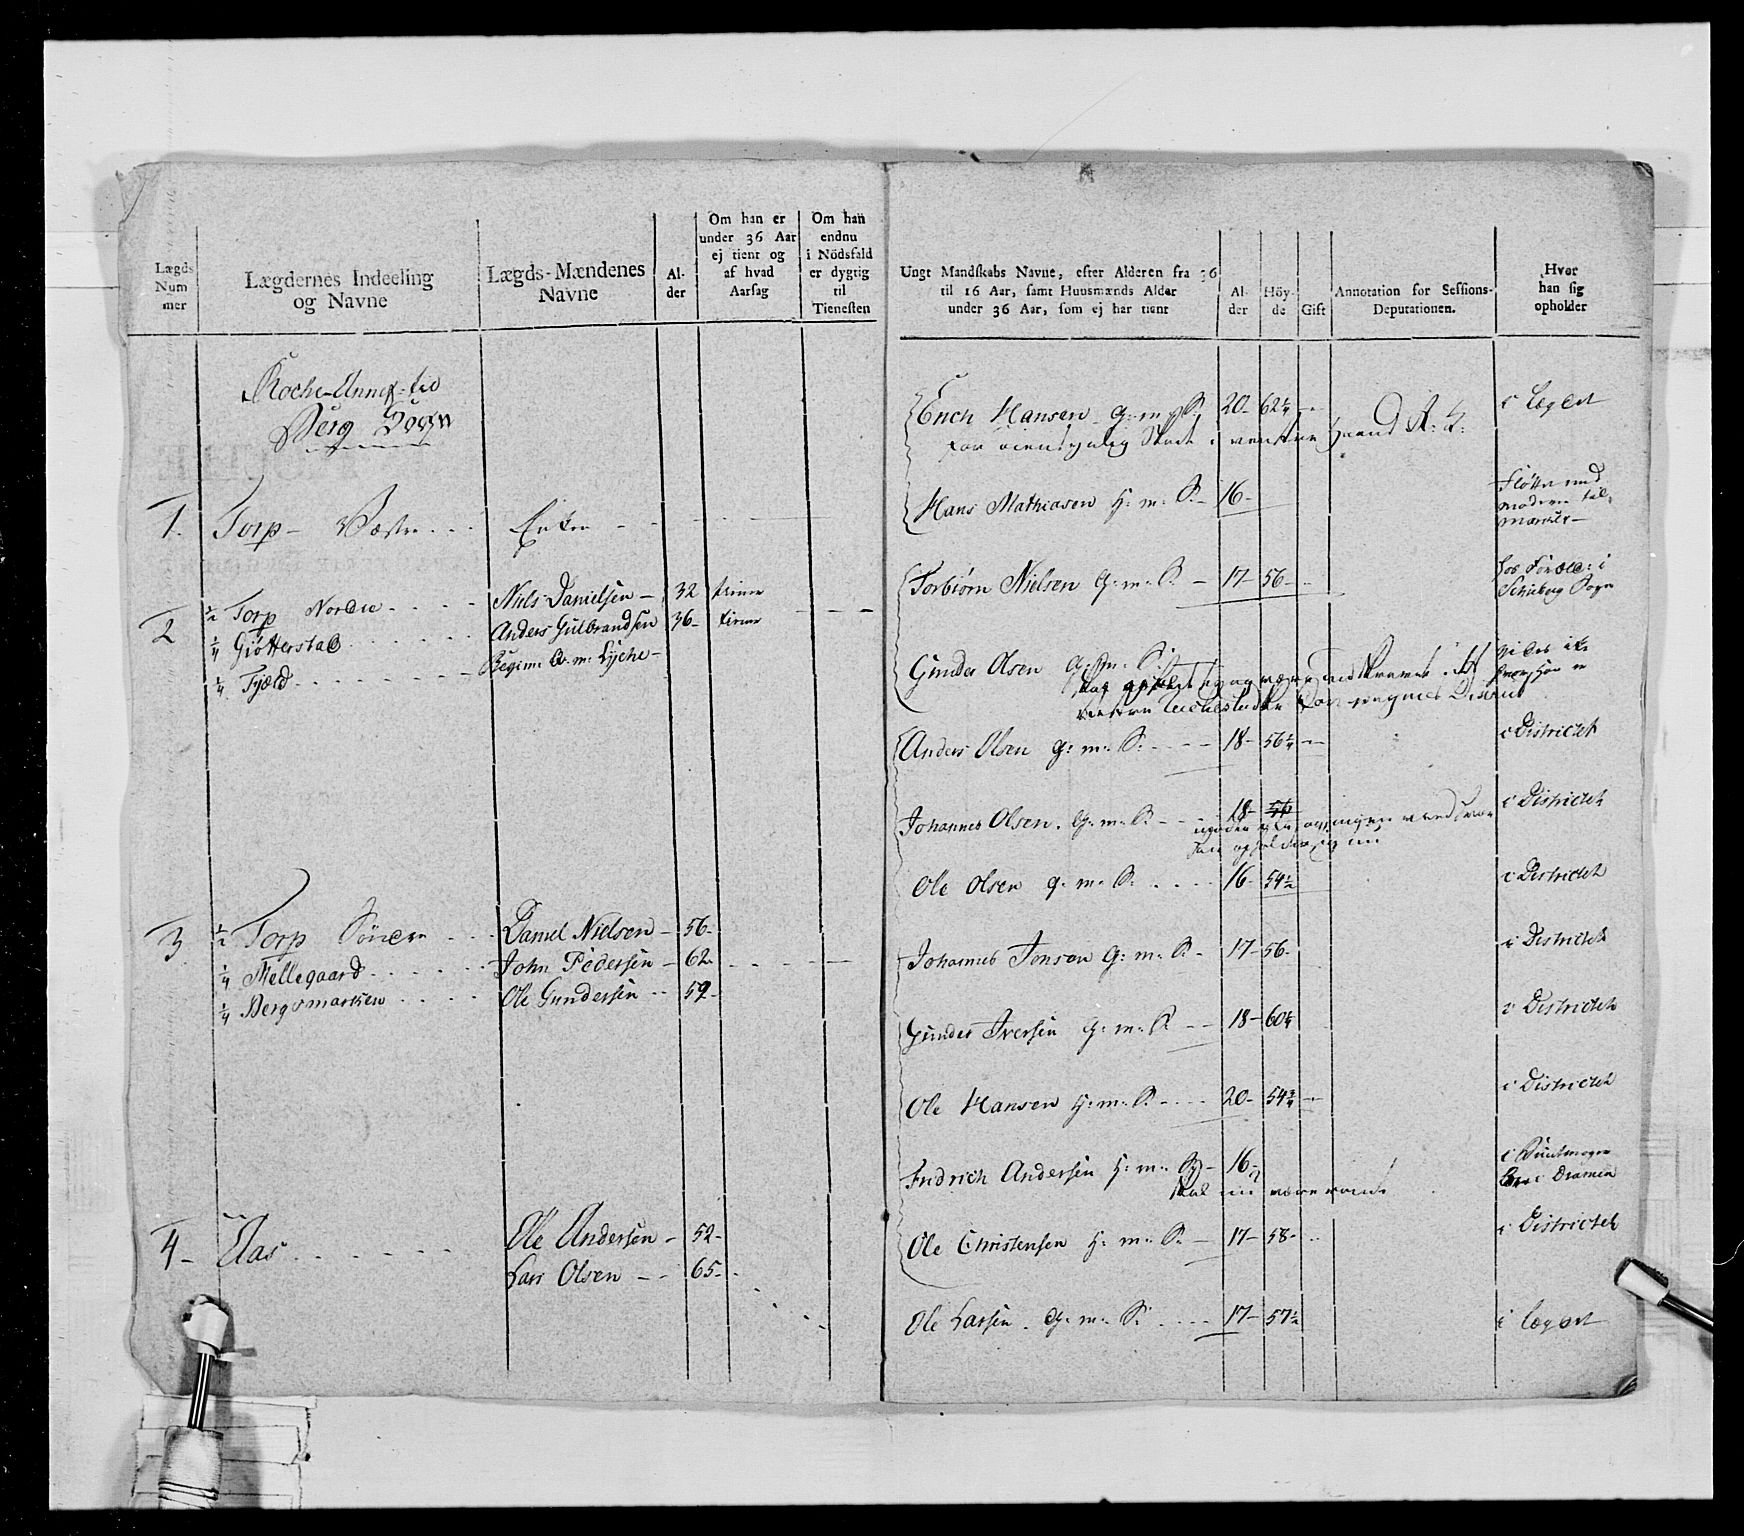 Lægds Nummer
Lægdernes Indeeling og Navne
Lægds-Mændenes Navne
Alder
Om han er under 36 Aar ej tient og af hvad Aarsag
Om han endnu i Nödsfald er dygtig til Tienesten
Rocke-Annex til
Berg Sogn
1. Torp - Væstre - - - Enken - - - -
2 ½ Torp Nordre - - - - Niels Danielsen - 32 tiener
¼ Giøtterstad - - - - - Anders Gulbrandsen 36 - tiener
¼ Fjæld - - - - - - - Regim: Q. m: Lyche -
3 ½ Torp Söndre - - - Daniel Nielsen - 56 -
¼ Mellegaard - - - - - - John Pedersen - 62 -
¼ Bergsmarken - - - - Ole Gundersen - - 59 -
4 - Aas - - - - - - - Ole Andersen - 52 -
Lars Olsen - - 65 -
Ungt Mandskabs Navne, efter Alderen fra 36 til 16 Aar, samt Huusmænds Alder under 36 Aar, som ej har tient
Alder
Höyde
Gift
Annotation for Sessions-Deputationen.
Hvor han sig opholder
Erich Hansen G: m: S. 20 - 62 ¼ - i Lægdet
for öiensynlig Skade i venstre Haand
Hans Mathiasen H: m: S. - 16 -
Torbiörn Nielsen G: m: S. - 17 - 56 - hos Foræld: i
Schieberg Sogn
Gunder Olsen G: m: S.
Anders Olsen G: m: S. - - - 18 - 56 ¼ - i Districtet
Johannes Olsen. G: m: S. - - - 18 - 56 i Districtet
Ole Olsen G: m: S. - - - - 16 - 54 ½ i Districtet
Johannes Jonsen G: m: S. - 17 - 56 - i Districtet
Gunder Iversen G: m: S. - - 18 - 60 ¼ i Districtet
Ole Hansen H: m: S. - - - 20 - 54 ¾ - i Districtet
Fridrich Andersen H: m: S. - 16 -
skal nu være
i Dramen
Ole Christensen H: m: S. - 17 - 58 - i Districtet
Ole Larsen. G: m: S. - - - - 17 - 57 ½ i Lægdet